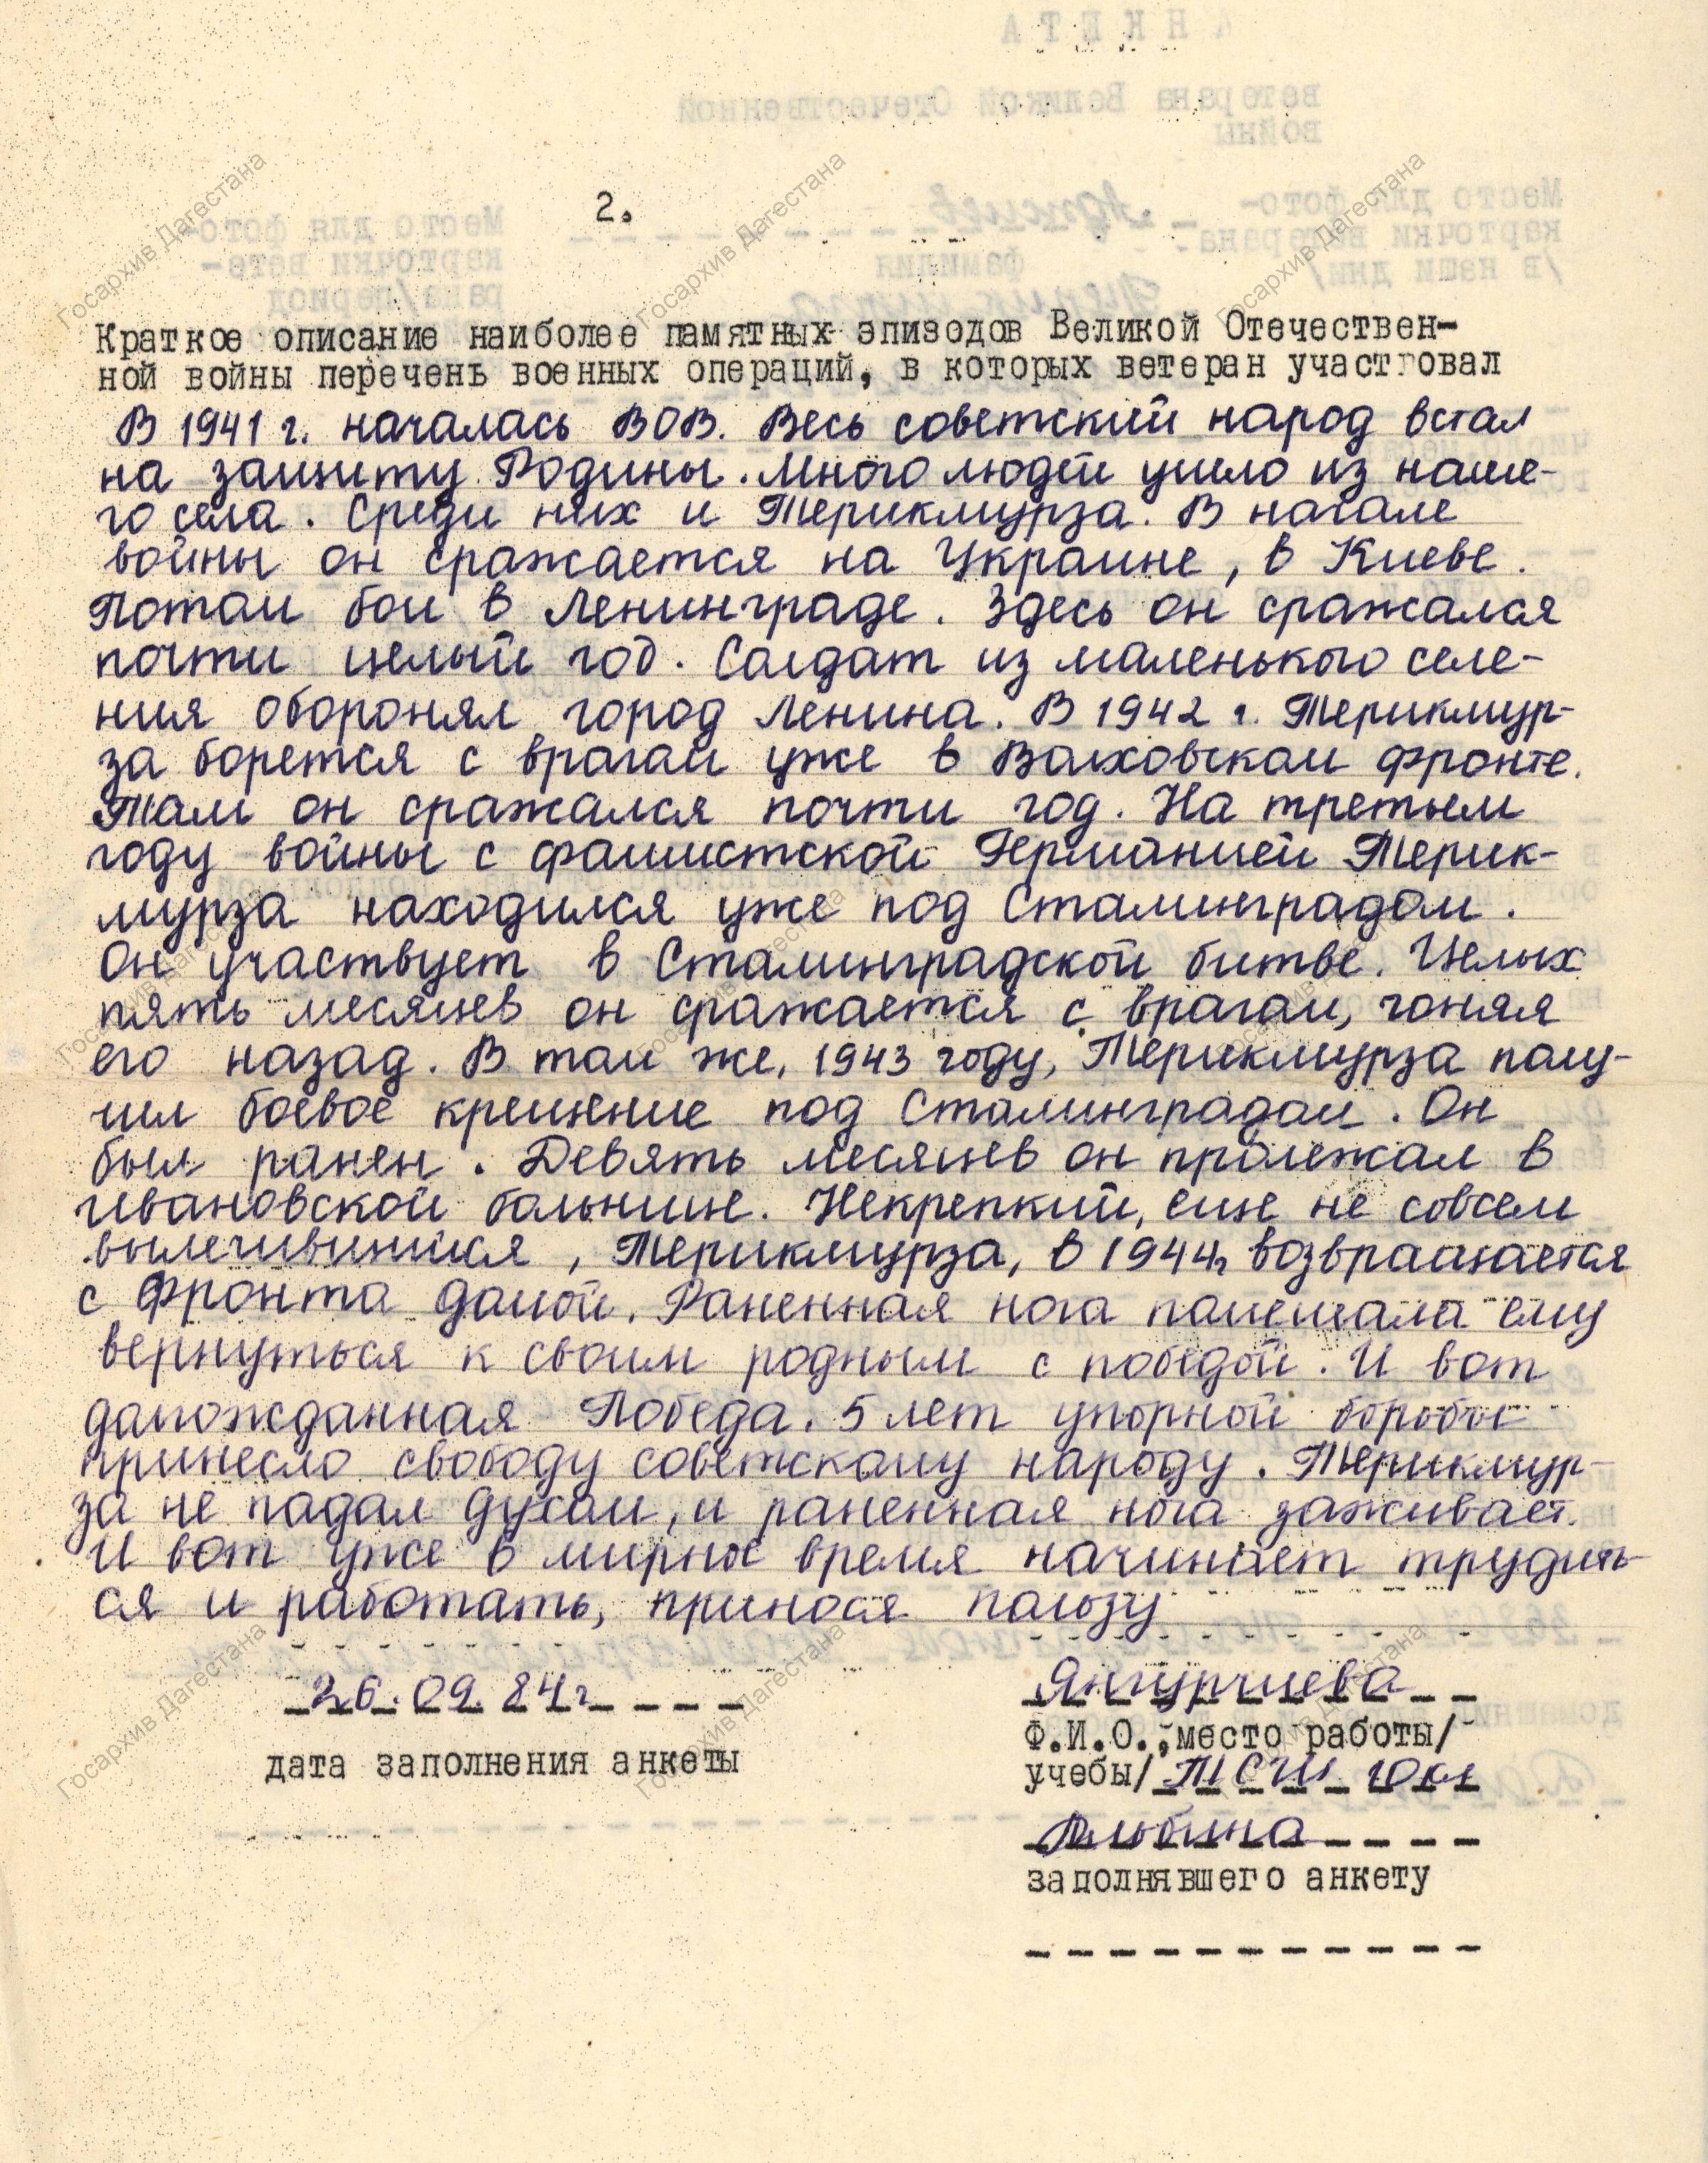 2.
Краткое описание наиболее памятных эпизодов Великой Отечествен-
ной войны перечень военных операций, в которых ветеран участвовал
В 1941 г. началась ВОВ. Весь советский народ встал
на защиту Родины. Много людей ушло из наше-
го села. Среди них и Терикмурза. В начале
войны он сражается на Украине, в Киеве.
Потом бои в Ленинграде. Здесь он сражался
почти целый год. Солдат из маленького селе-
ния оборонял город Ленина. В 1942 г. Терикмур-
за борется с врагом уже в Волховском фронте.
Там он сражался почти год. На третьем
году войны с фашистской Германией Терик-
мурза находился уже под Сталинградом.
Он участвует в Сталинградской битве. Целых
пять месяцев он сражается с врагом, гоняя
его назад. В том же, 1943 году, Терикмурза полу-
чил боевое крещение под Сталинградом. Он
был ранен. Девять месяцев он пролежал в
ивановской больнице. Некрепкий, еще не совсем
вылечившийся, Терикмурза, в 1944г возвращается
с фронта домой. Раненная нога помешала ему
вернуться к своим родным с победой. И вот
долгожданная Победа. 5 лет упорной борьбы
принесло свободу советскому народу. Терикмур-
за не падал духом, и раненная нога заживает.
И вот уже в мирное время начинает трудить-
ся и работать, принося пользу
26.09.84г
Янгурчиева
Ф.И.О., место работы/
дата заполнения анкеты
учебы/ ТСШ 10кл
Альбина
заполнявшего анкету
Госархив Дагестана